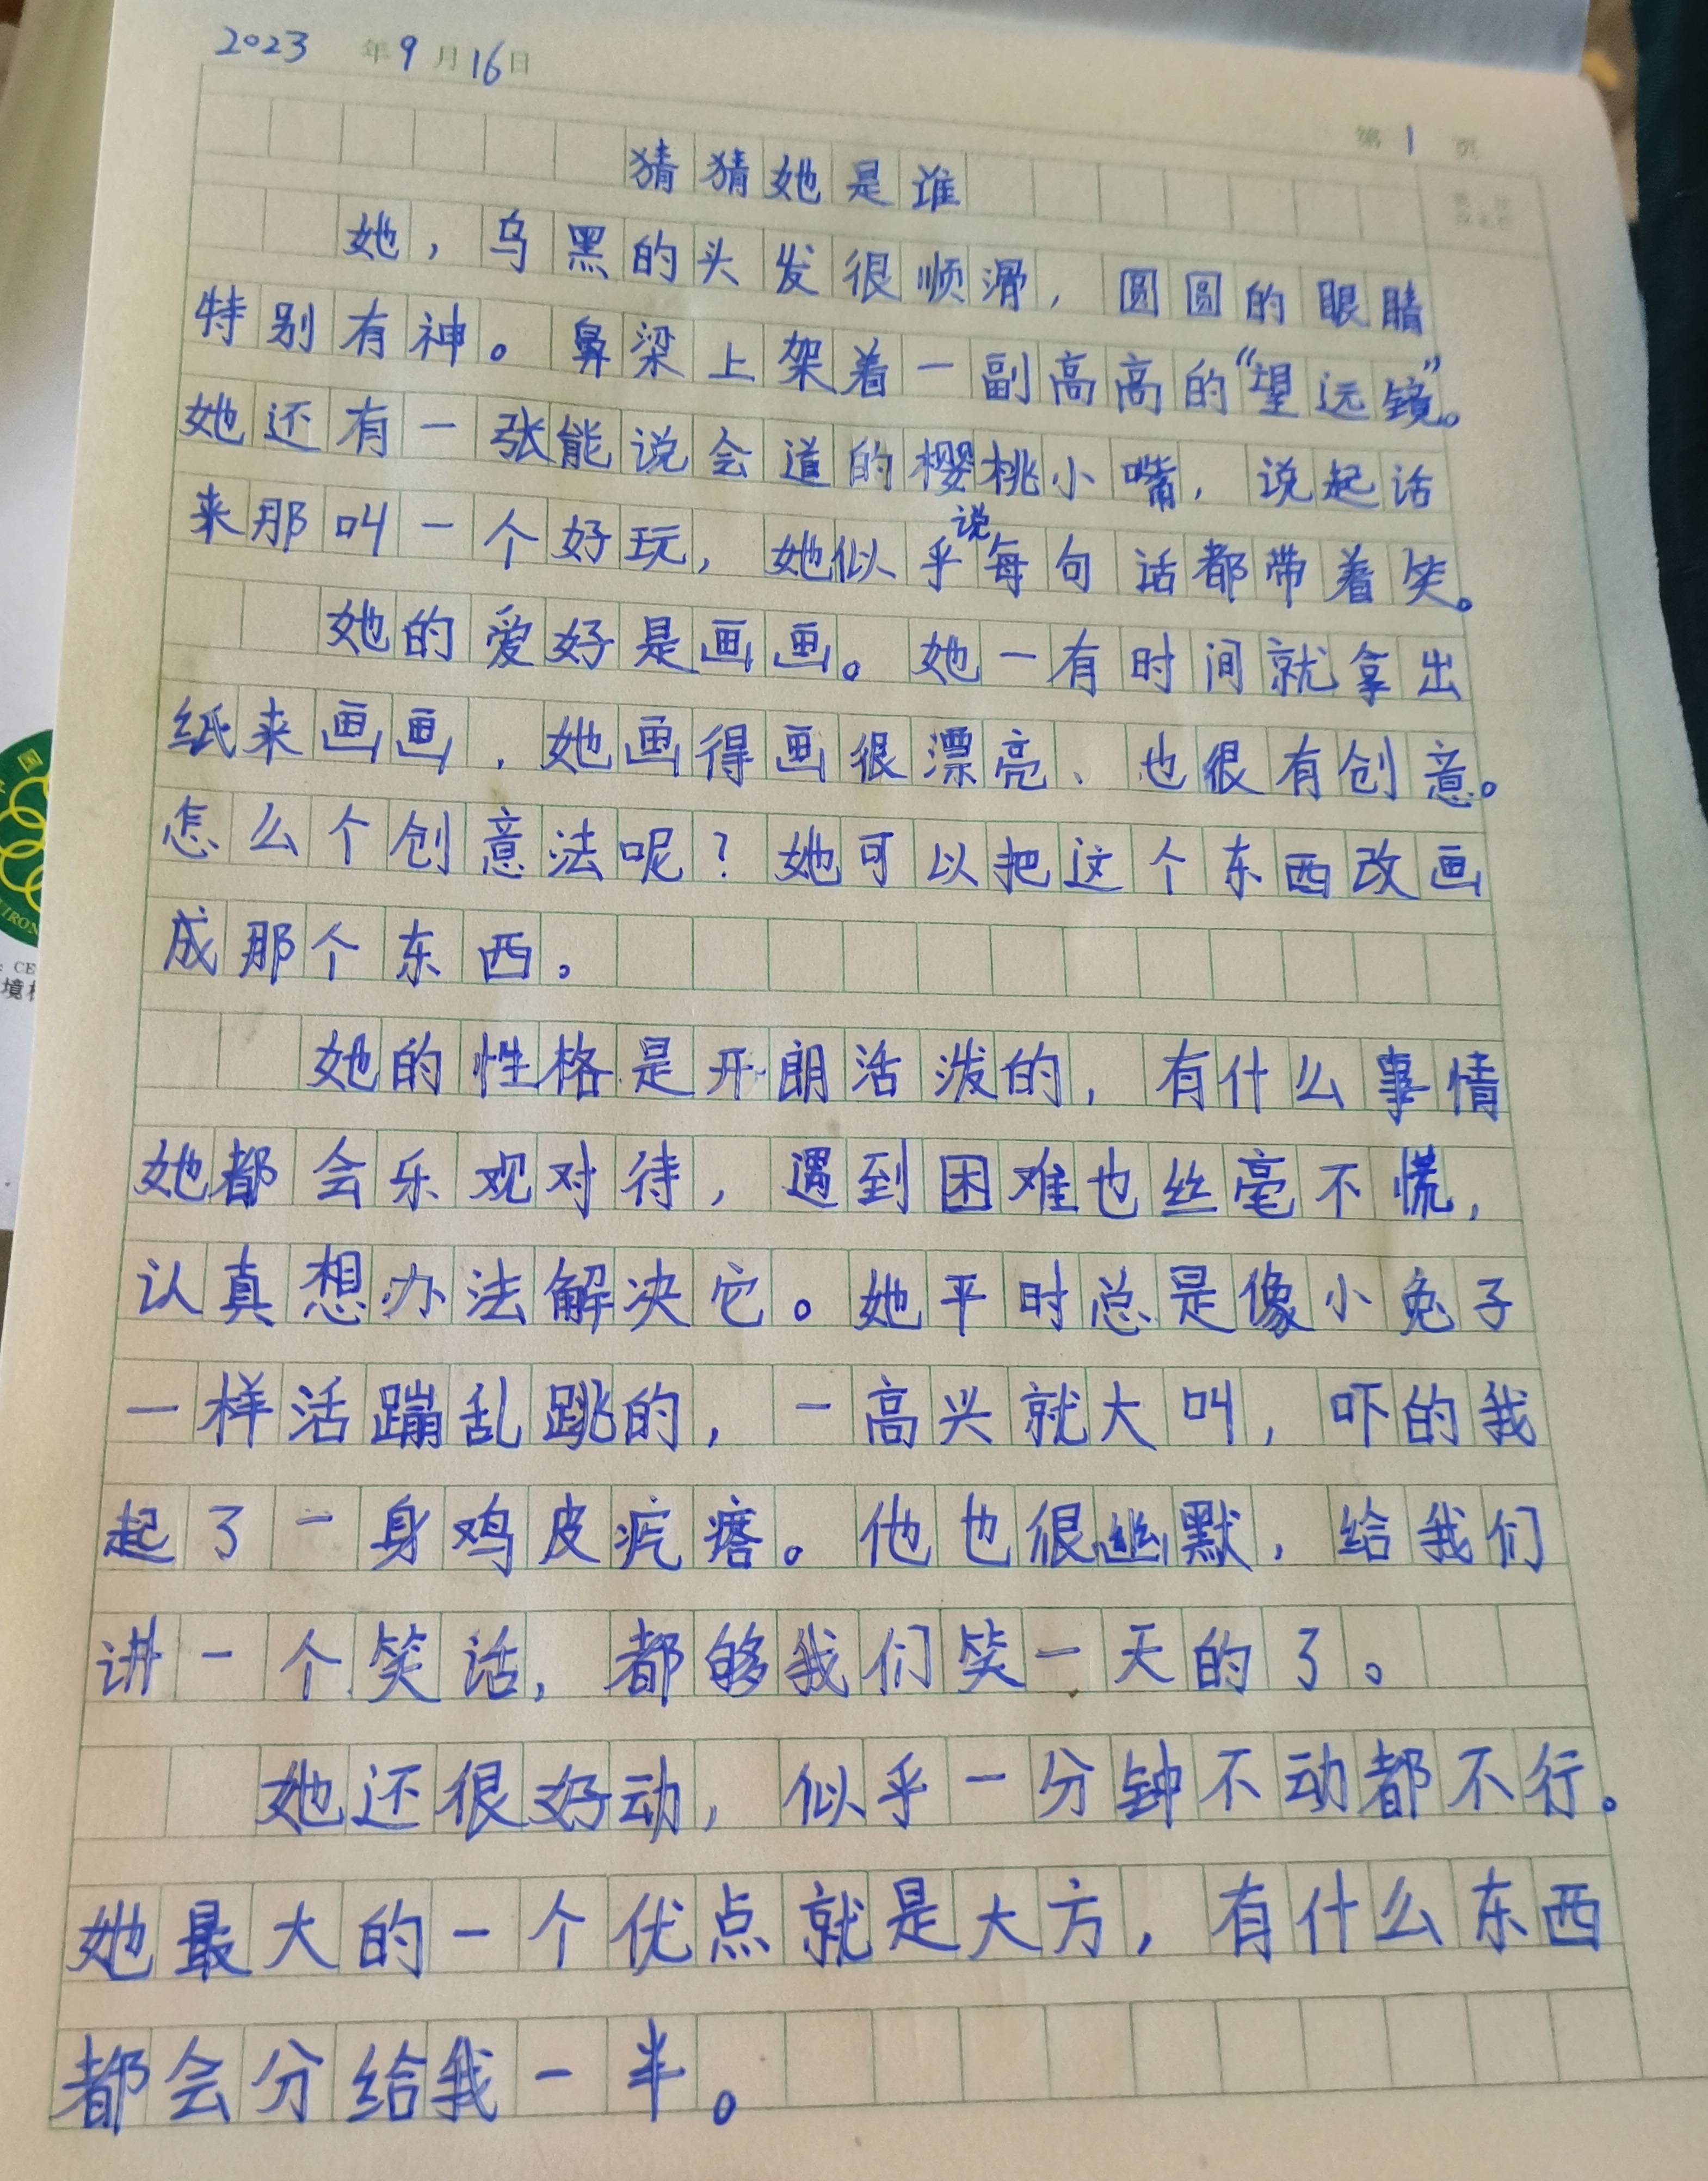 2023年9月16日
第1页
猜猜她是谁
她，乌黑的头发很顺滑，圆圆的眼睛
特别有神。鼻梁上架着一副高高的“望远镜”。
她还有一张能说会道的樱桃小嘴，说起话
来那叫一个好玩，她似乎说每句话都带着笑。
她的爱好是画画。她一有时间就拿出
纸来画画，她画得画很漂亮、也很有创意。
怎么个创意法呢？她可以把这个东西改画
成那个东西。
她的性格是开朗活泼的，有什么事情
她都会乐观对待，遇到困难也丝毫不慌，
认真想办法解决它。她平时总是像小兔子
一样活蹦乱跳的，一高兴就大叫，吓的我
起了一身鸡皮疙瘩。他也很幽默，给我们
讲一个笑话，都够我们笑一天的了。
她还很好动，似乎一分钟不动都不行。
她最大的一个优点就是大方，有什么东西
都会分给我一半。
国
IRON
: CE
境